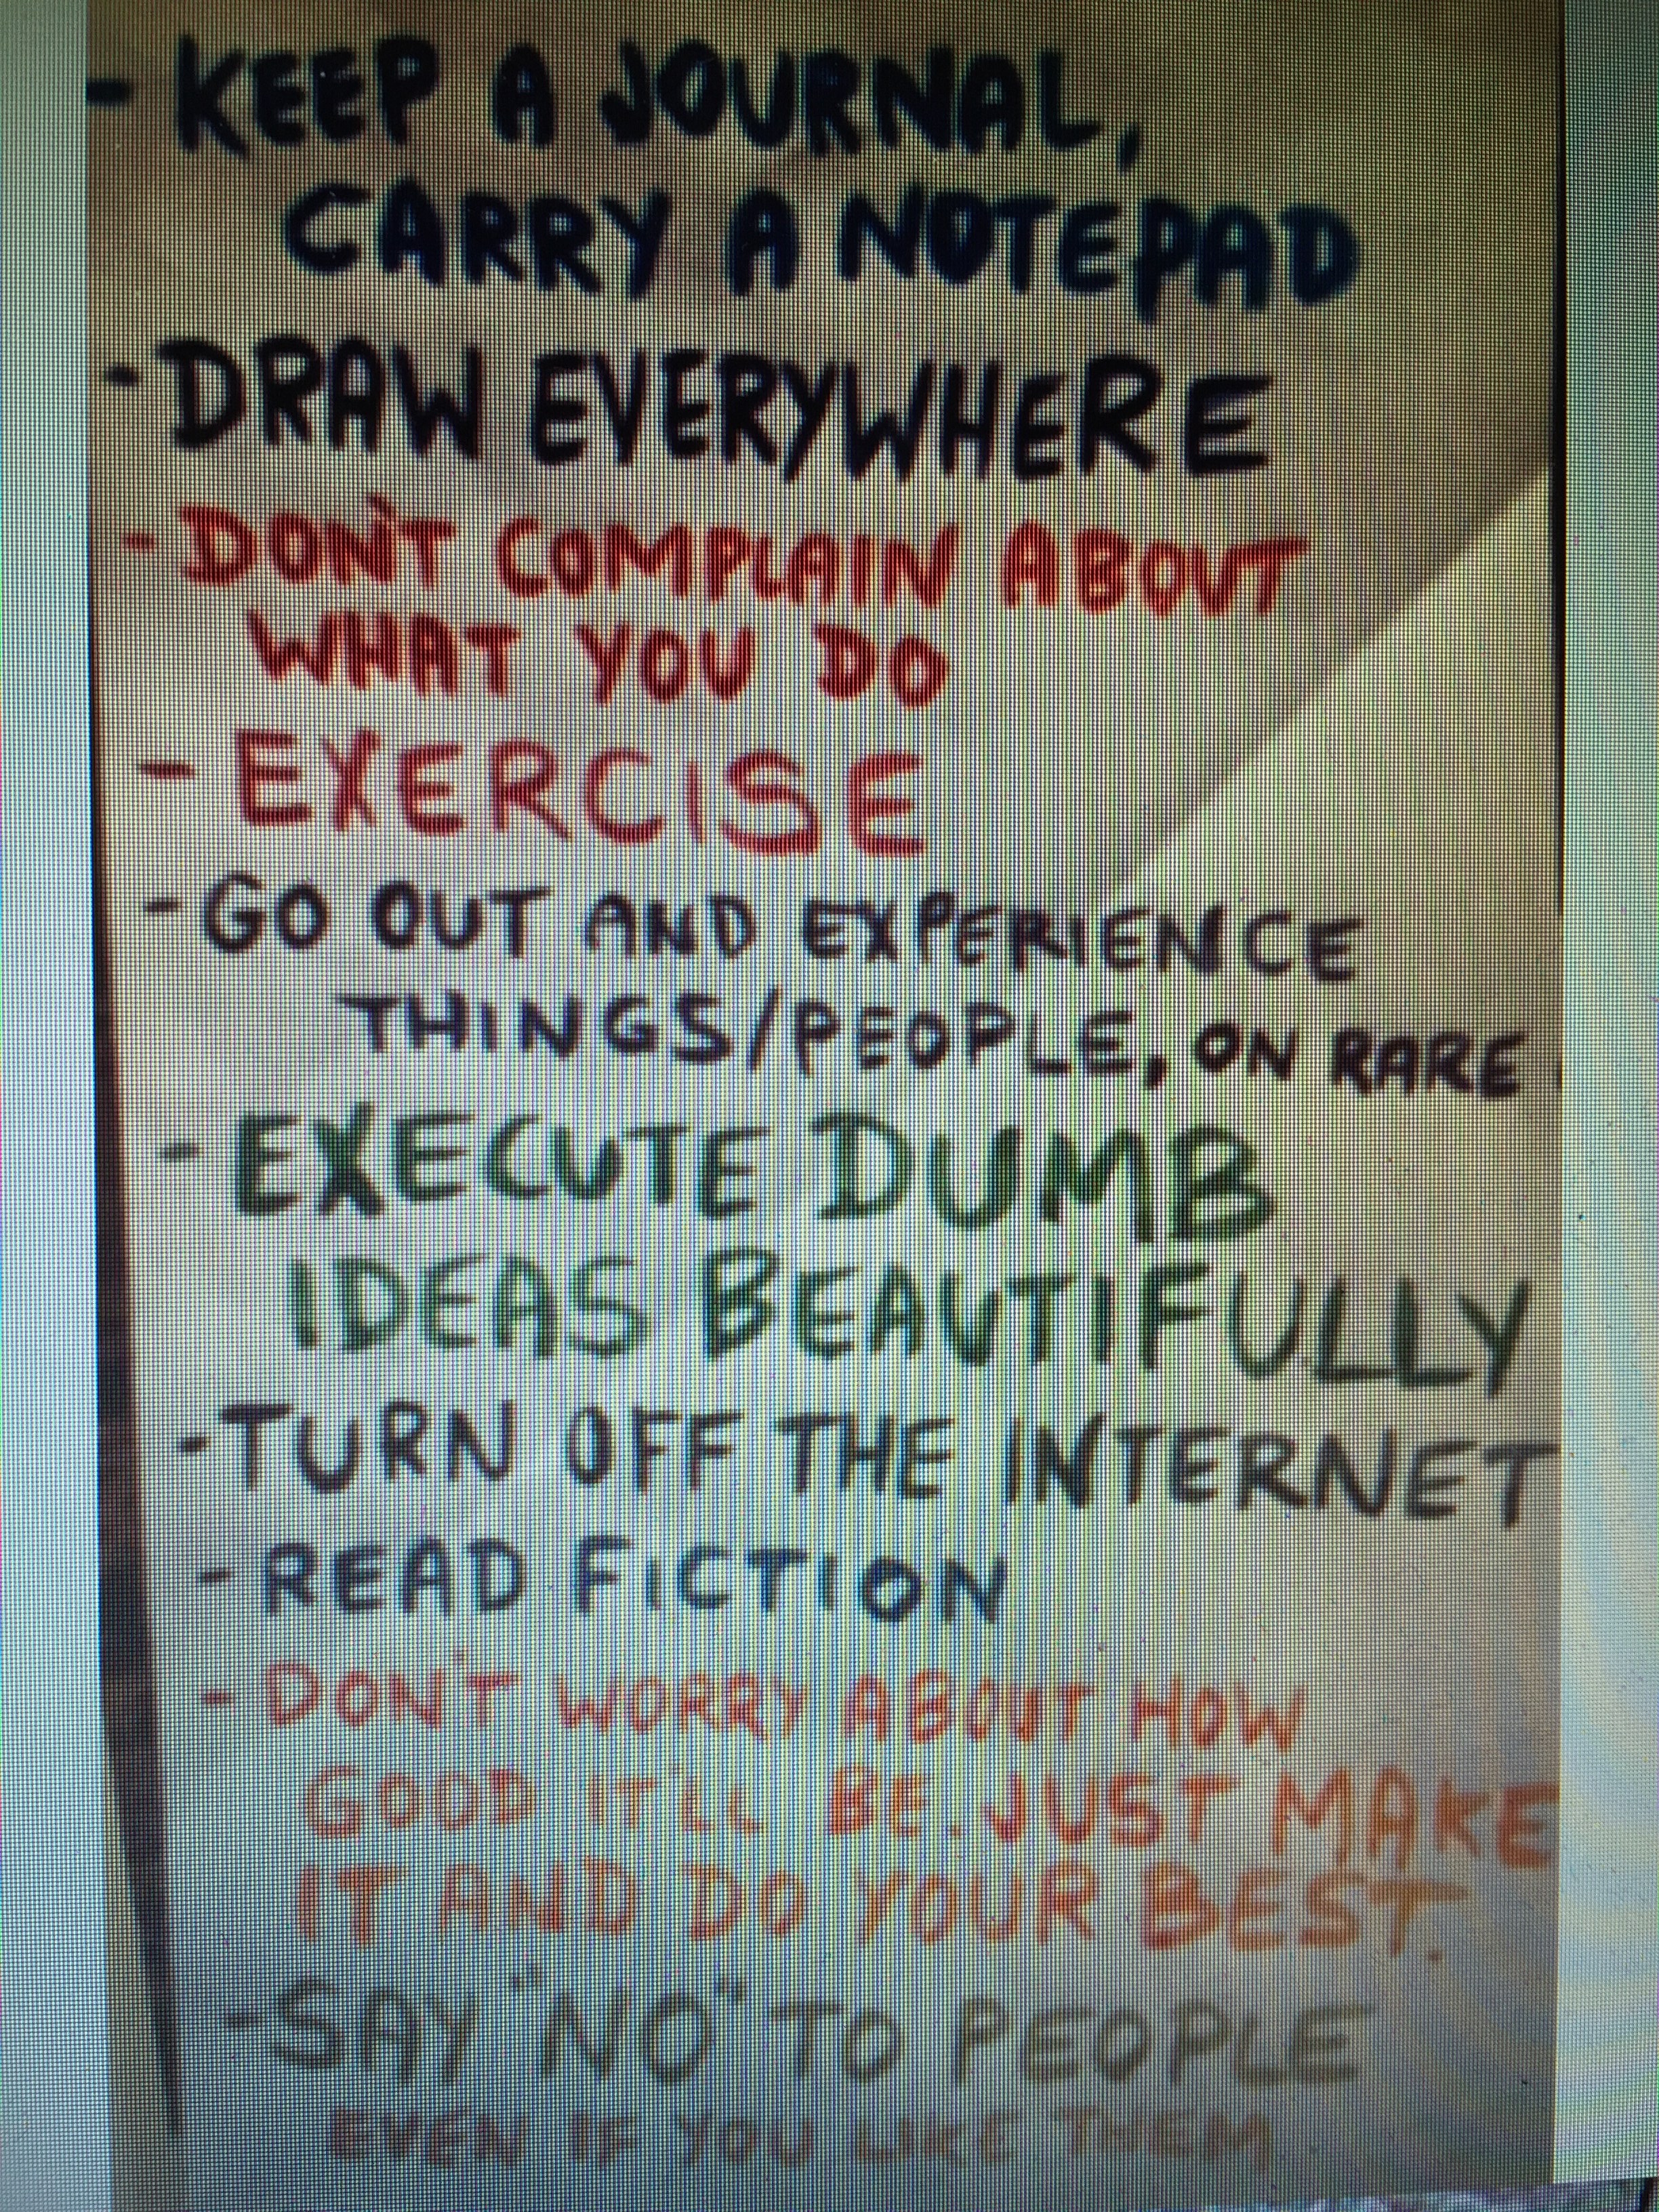 - KEEP A JOURNAL,
CARRY A NOTEPAD
- DRAW EVERYWHERE
- DON'T COMPLAIN ABOUT
WHAT YOU DO
- EXERCISE
- GO OUT AND EXPERIENCE
THINGS/PEOPLE, ON RARE
- EXECUTE DUMB
IDEAS BEAUTIFULLY
- TURN OFF THE INTERNET
- READ FICTION
- DON'T WORRY ABOUT HOW
GOOD IT'LL BE. JUST MAKE
IT AND DO YOUR BEST.
- SAY "NO" TO PEOPLE
EVEN IF YOU LIKE THEM